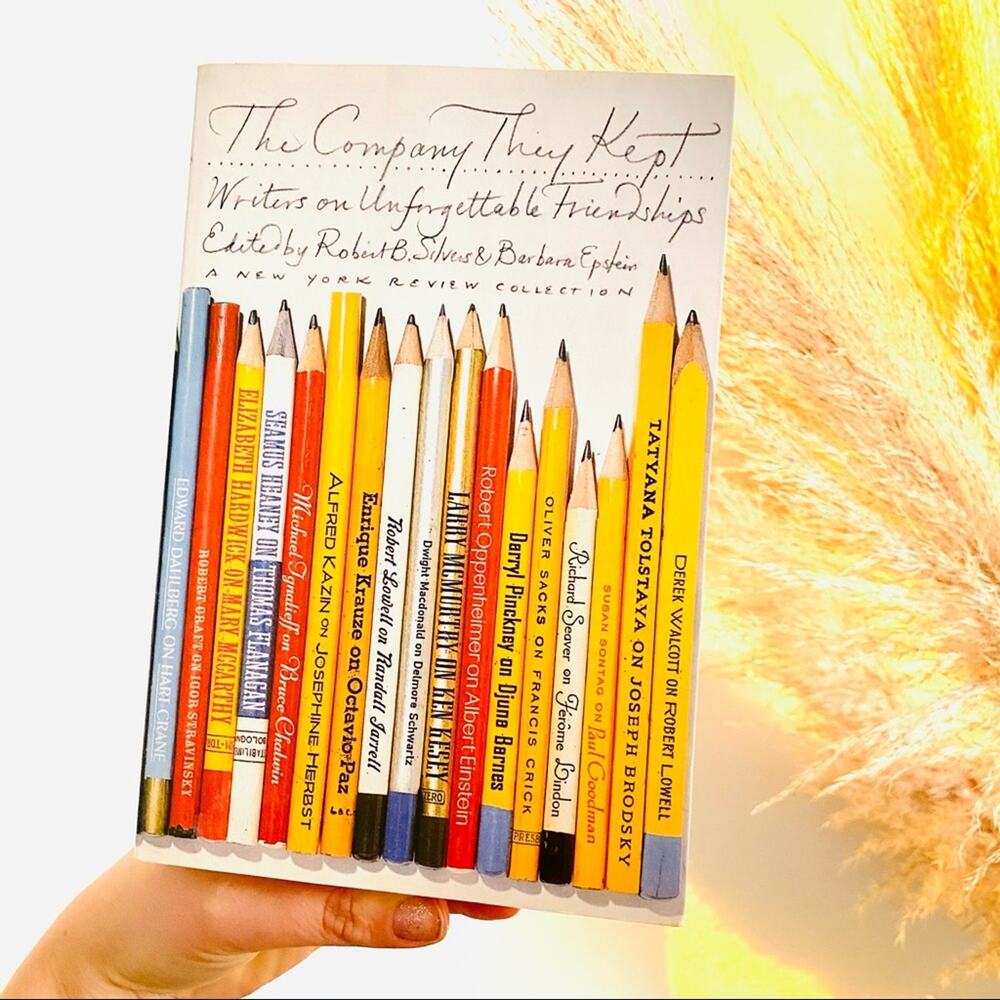 The Company They Kept
Writers on Unforgettable Friendships
Edited by Robert B. Silvers & Barbara Epstein
A NEW YORK REVIEW COLLECTION
EDWARD DAHLBERG ON HART CRANE
ROBERT CRAFT ON IGOR STRAVINSKY
ELIZABETH HARDWICK ON MARY MCCARTHY
SEAMUS HEANEY ON THOMAS FLANAGAN
Michael Ignatieff on Bruce Chatwin
ALFRED KAZIN ON JOSEPHINE HERBST
Enrique Krauze on Octavio Paz
Robert Lowell on Randall Jarrell
Dwight Macdonald on Delmore Schwartz
LARRY MCMURTRY ON KEN KESEY
ZERO
Robert Oppenheimer on Albert Einstein
Darryl Pinckney on Djuna Barnes
OLIVER SACKS ON FRANCIS CRICK
PRESS
Richard Seaver on Jérôme Lindon
SUSAN SONTAG ON Paul Goodman
TATYANA TOLSTAYA ON JOSEPH BRODSKY
DEREK WALCOTT ON ROBERT LOWELL